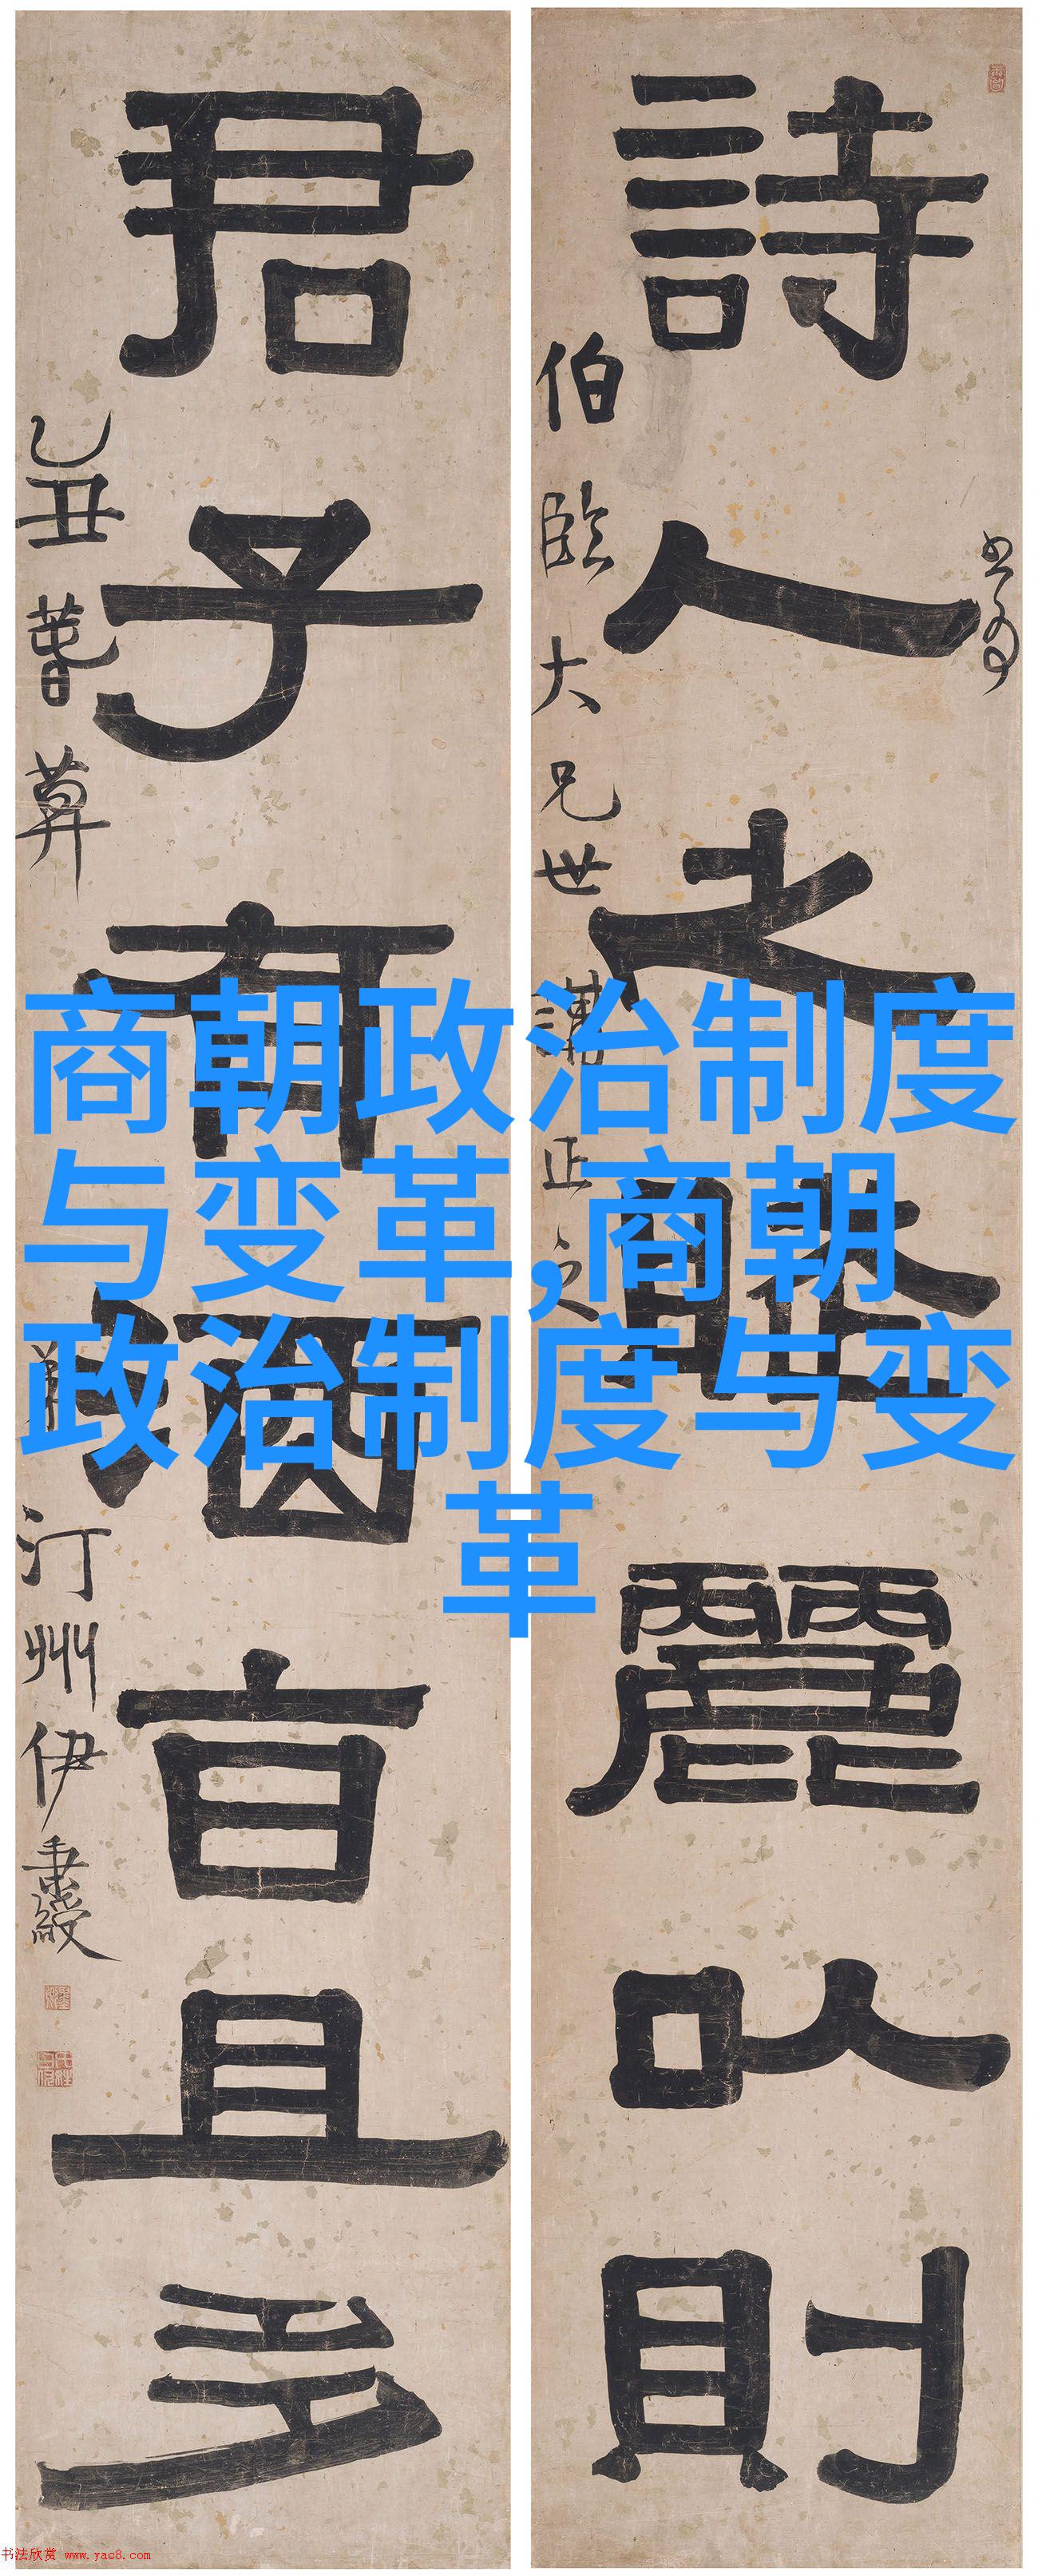 詩人之賦麗以則
伯臨大兄世講正之
君子有酒旨且多
乙丑
汀州伊秉綬
商朝政治制度
与变革,商朝
政治制度与变
革
书法欣赏 www.yac8.com